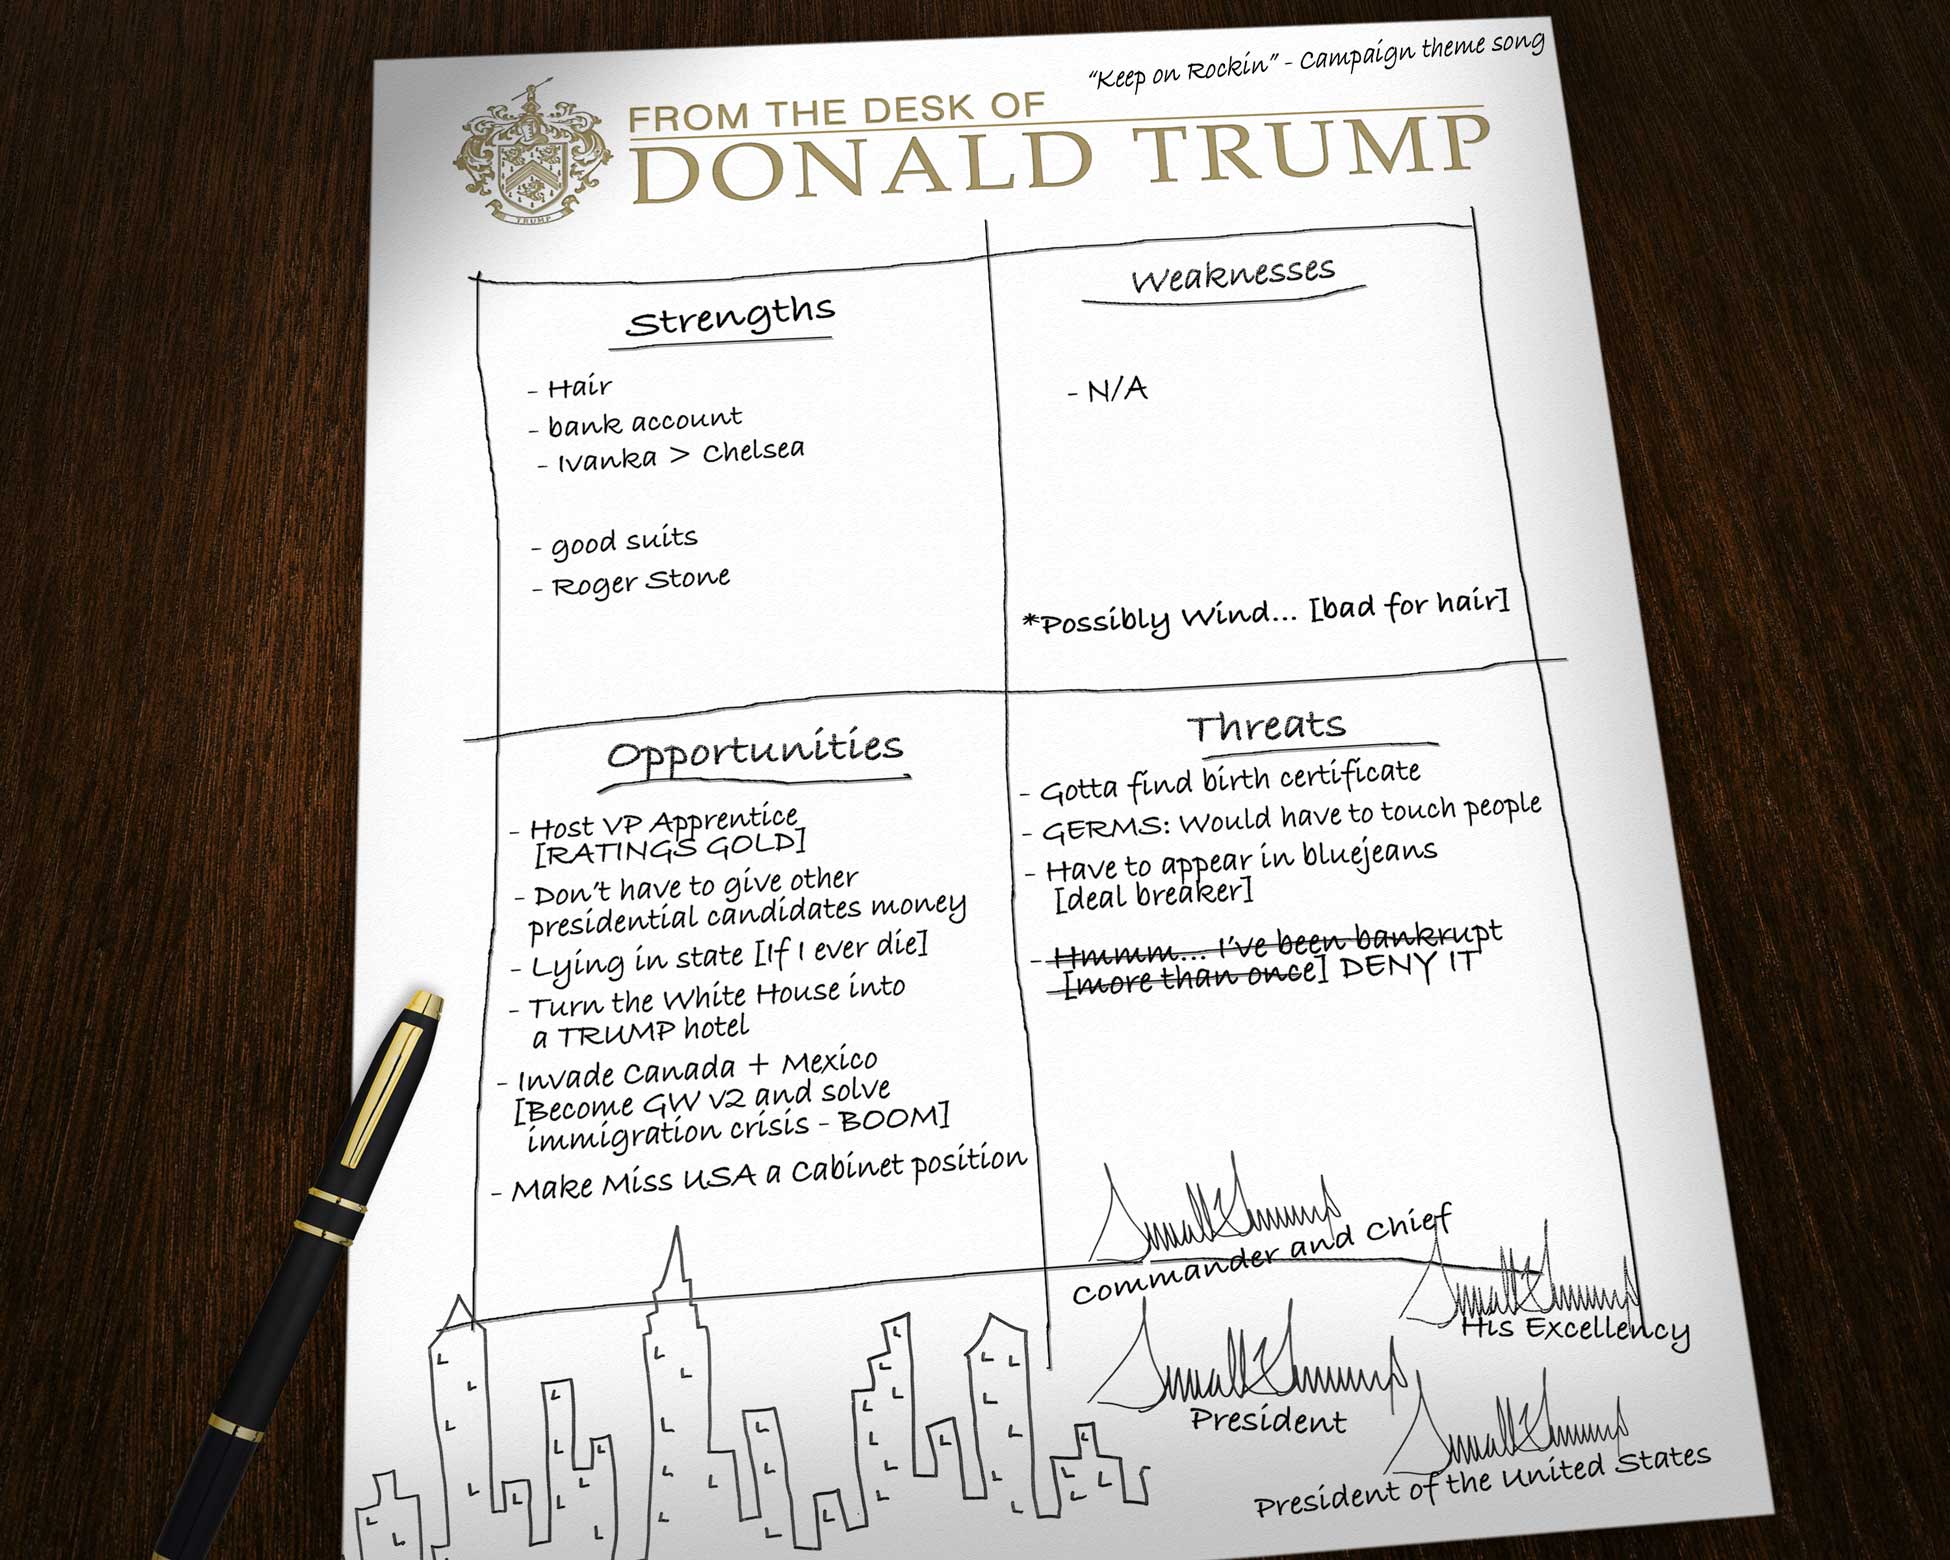 "Keep on Rockin" - Campaign theme song
FROM THE DESK OF
DONALD TRUMP
TRUMP
Strengths
- Hair
- bank account
- Ivanka > Chelsea
- good suits
- Roger Stone
Weaknesses
- N/A
*Possibly Wind... [bad for hair]
Opportunities
- Host VP Apprentice
[RATINGS GOLD]
- Don't have to give other
presidential candidates money
- Lying in state [If I ever die]
- Turn the White House into
a TRUMP hotel
- Invade Canada + Mexico
[Become GW v2 and solve
immigration crisis - BOOM]
- Make Miss USA a Cabinet position
Threats
- Gotta find birth certificate
- GERMS: Would have to touch people
- Have to appear in bluejeans
[deal breaker]
- Hmmm... I've been bankrupt
[more than once] DENY IT
Commander and Chief
His Excellency
President
President of the United States